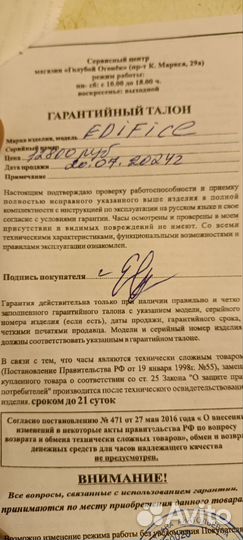 Сервисный центр
магазин «Голубой Огонёк» (пр-т К. Маркса, 29а)
режим работы:
пн- сб: с 10.00 до 18.00 ч.
воскресенье: выходной
ГАРАНТИЙНЫЙ ТАЛОН
Марка изделия, модель EDIFICE
Серийный номер
Цена 12800 руб
Дата продажи 20.07.2024г
Примечание
Настоящим подтверждаю проверку работоспособности и приемку
полностью исправного указанного выше изделия в полной
комплектности с инструкцией по эксплуатации на русском языке и свое
согласие с условиями гарантии. Часы осмотрены и проверены в моем
присутствии и видимых повреждений не имеют. Со всеми
техническими характеристиками, функциональными возможностями и
правилами эксплуатации ознакомлен.
Подпись покупателя
Гарантия действительна только при наличии правильно и четко
заполненного гарантийного талона с указанием модели, серийного
номера изделия (если есть), даты продажи, гарантийного срока,
четкими печатями продавца. Модели и серийный номер изделия
должны соответствовать указанным в гарантийном талоне.
В связи с тем, что часы являются технически сложным товаром
(Постановление Правительства РФ от 19 января 1998г. №55), замена
купленного товара о соответствии со ст. 25 Закона "О защите прав
потребителей" производится после технического освидетельствования
изделия, сроком до 21 суток
Согласно постановлению № 471 от 27 мая 2016 года «О внесении
изменений в некоторые акты правительства РФ по вопросу
возврата и обмена технически сложных товаров», обмен и возврат
денежных средств для часов надлежащего качества
не предусмотрен.
ВНИМАНИЕ!
Все вопросы, связанные с использованием гарантии,
принимаются по месту приобретения данного товара
Возможно изменение режима работы без уведомления Покупателя
Avito